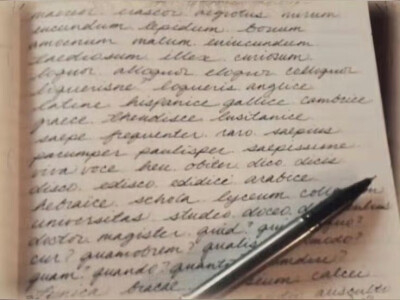 irascor aegrotus mirum
iucundum lepidum bonum
amoenum malum iniucundum
taediosum illex curiosum
loquor alloquor eloquor colloquor
loquerisne loqueris anglice
latine hispanice gallice
graece theudisce lusitanice
saepe frequenter raro saepius
parumper paulisper saepissime
viva voce heu obiter dico dicis
disco edisco edidici arabice
hebraice schola lyceum
universitas studeo doceo
doctor magister quid?
cur? quamobrem? qualis
quam? quando?
tunica bracae calcei
ausculto